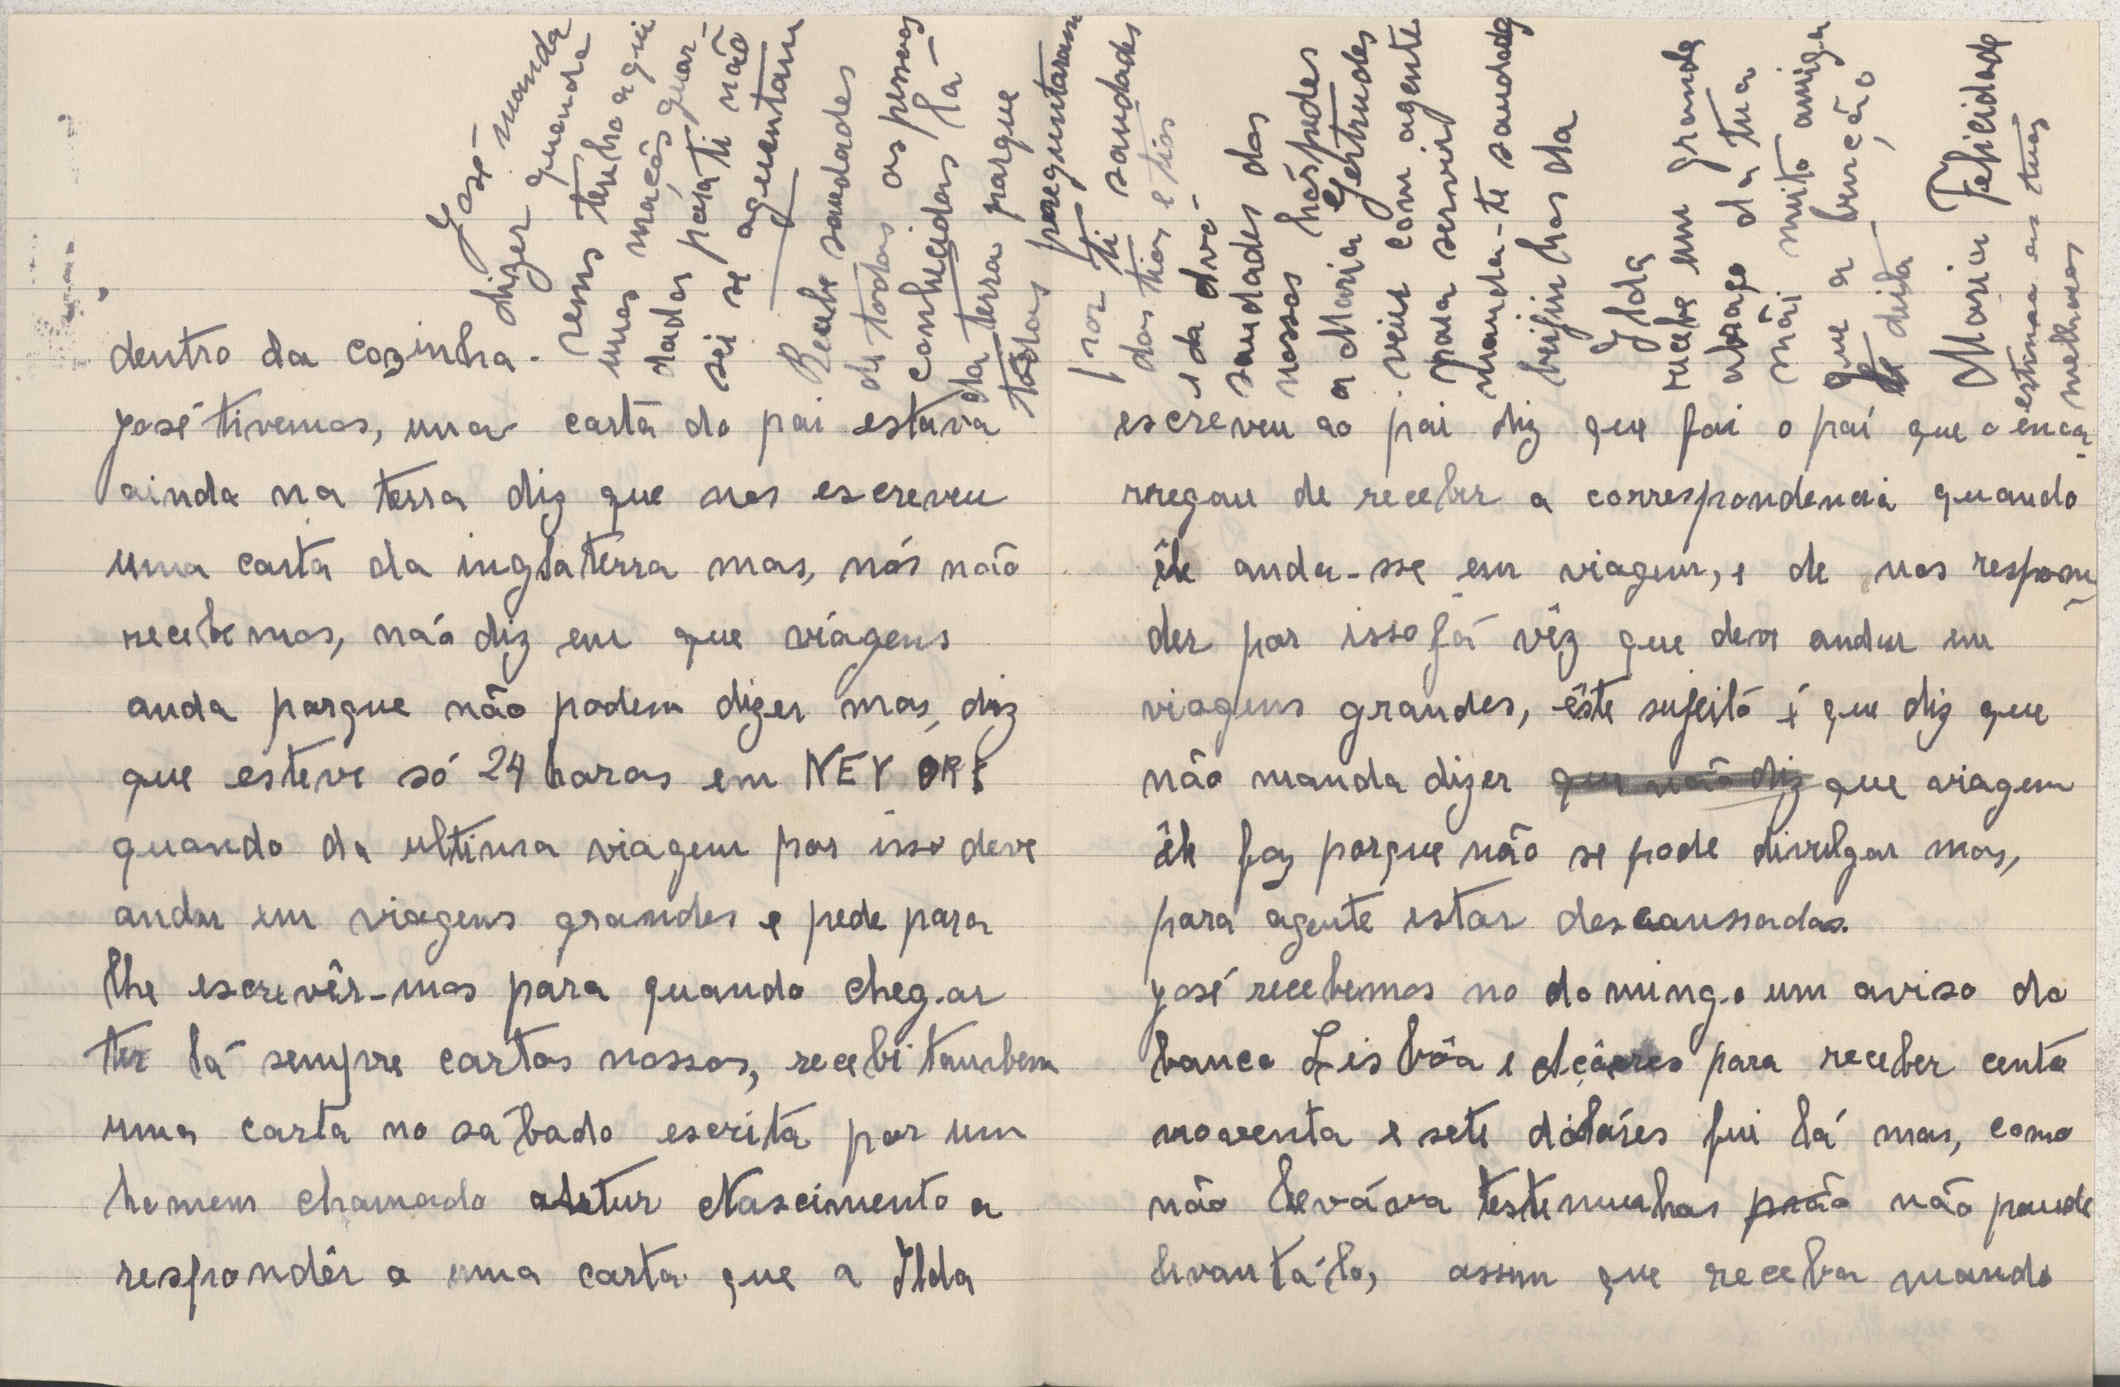 dentro da cozinha.
José tivemos, uma carta do pai estava
ainda na terra diz que nos escreveu
uma carta da inglaterra mas, nós não
recebemos, não diz em que viágens
anda porque não podem dizer mas, diz
que esteve só 24 horas em NEY ORK
quando da ultima viagem por isso deve
andar em viagens grandes e pede para
lhe escrevêr-mos para quando chegar
ter lá sempre cartas nossas, recebi tambem
uma carta no sabado escrita por um
homem chamado Artur Nascimento a
respondêr a uma carta que a Ilda
escreveu ao pai diz que foi o pai que o enca-
rregou de receber a correspondencia quando
êle anda-sse em viagem, e de nos respon-
der por isso já vêz que deve andar em
viagens grandes, êste sujeito é que diz que
não manda dizer que não diz que viagem
êle faz porque não se pode divulgar mas,
para agente estar descanssadas.
José recebemos no domingo um aviso do
banco Lisbôa e Açôres para receber cento
noventa e sete dóláres fui lá mas, como
não leváva testemunhas não poude
levantá-lo, assim que receba mando
José manda
dizer quando
vens tenho aqui
umas maçãs guar-
dadas para ti não
sei se aguentam
Recebe saudades
de todas as pessoas
conhecidas lá
da terra porque
todas preguntaram
por ti saudades
dos tios e tias
e da dvó-
saudades dos
nossos hóspedes
a Maria Gertrudes
veiu com agente
para servir
manda-te saudades
beijinhos da
Ilda
recebe um grande
abraço da tua
mãi muito amiga
que a benção
te deita
Maria Felicidade
estimo as tuas
melhoras